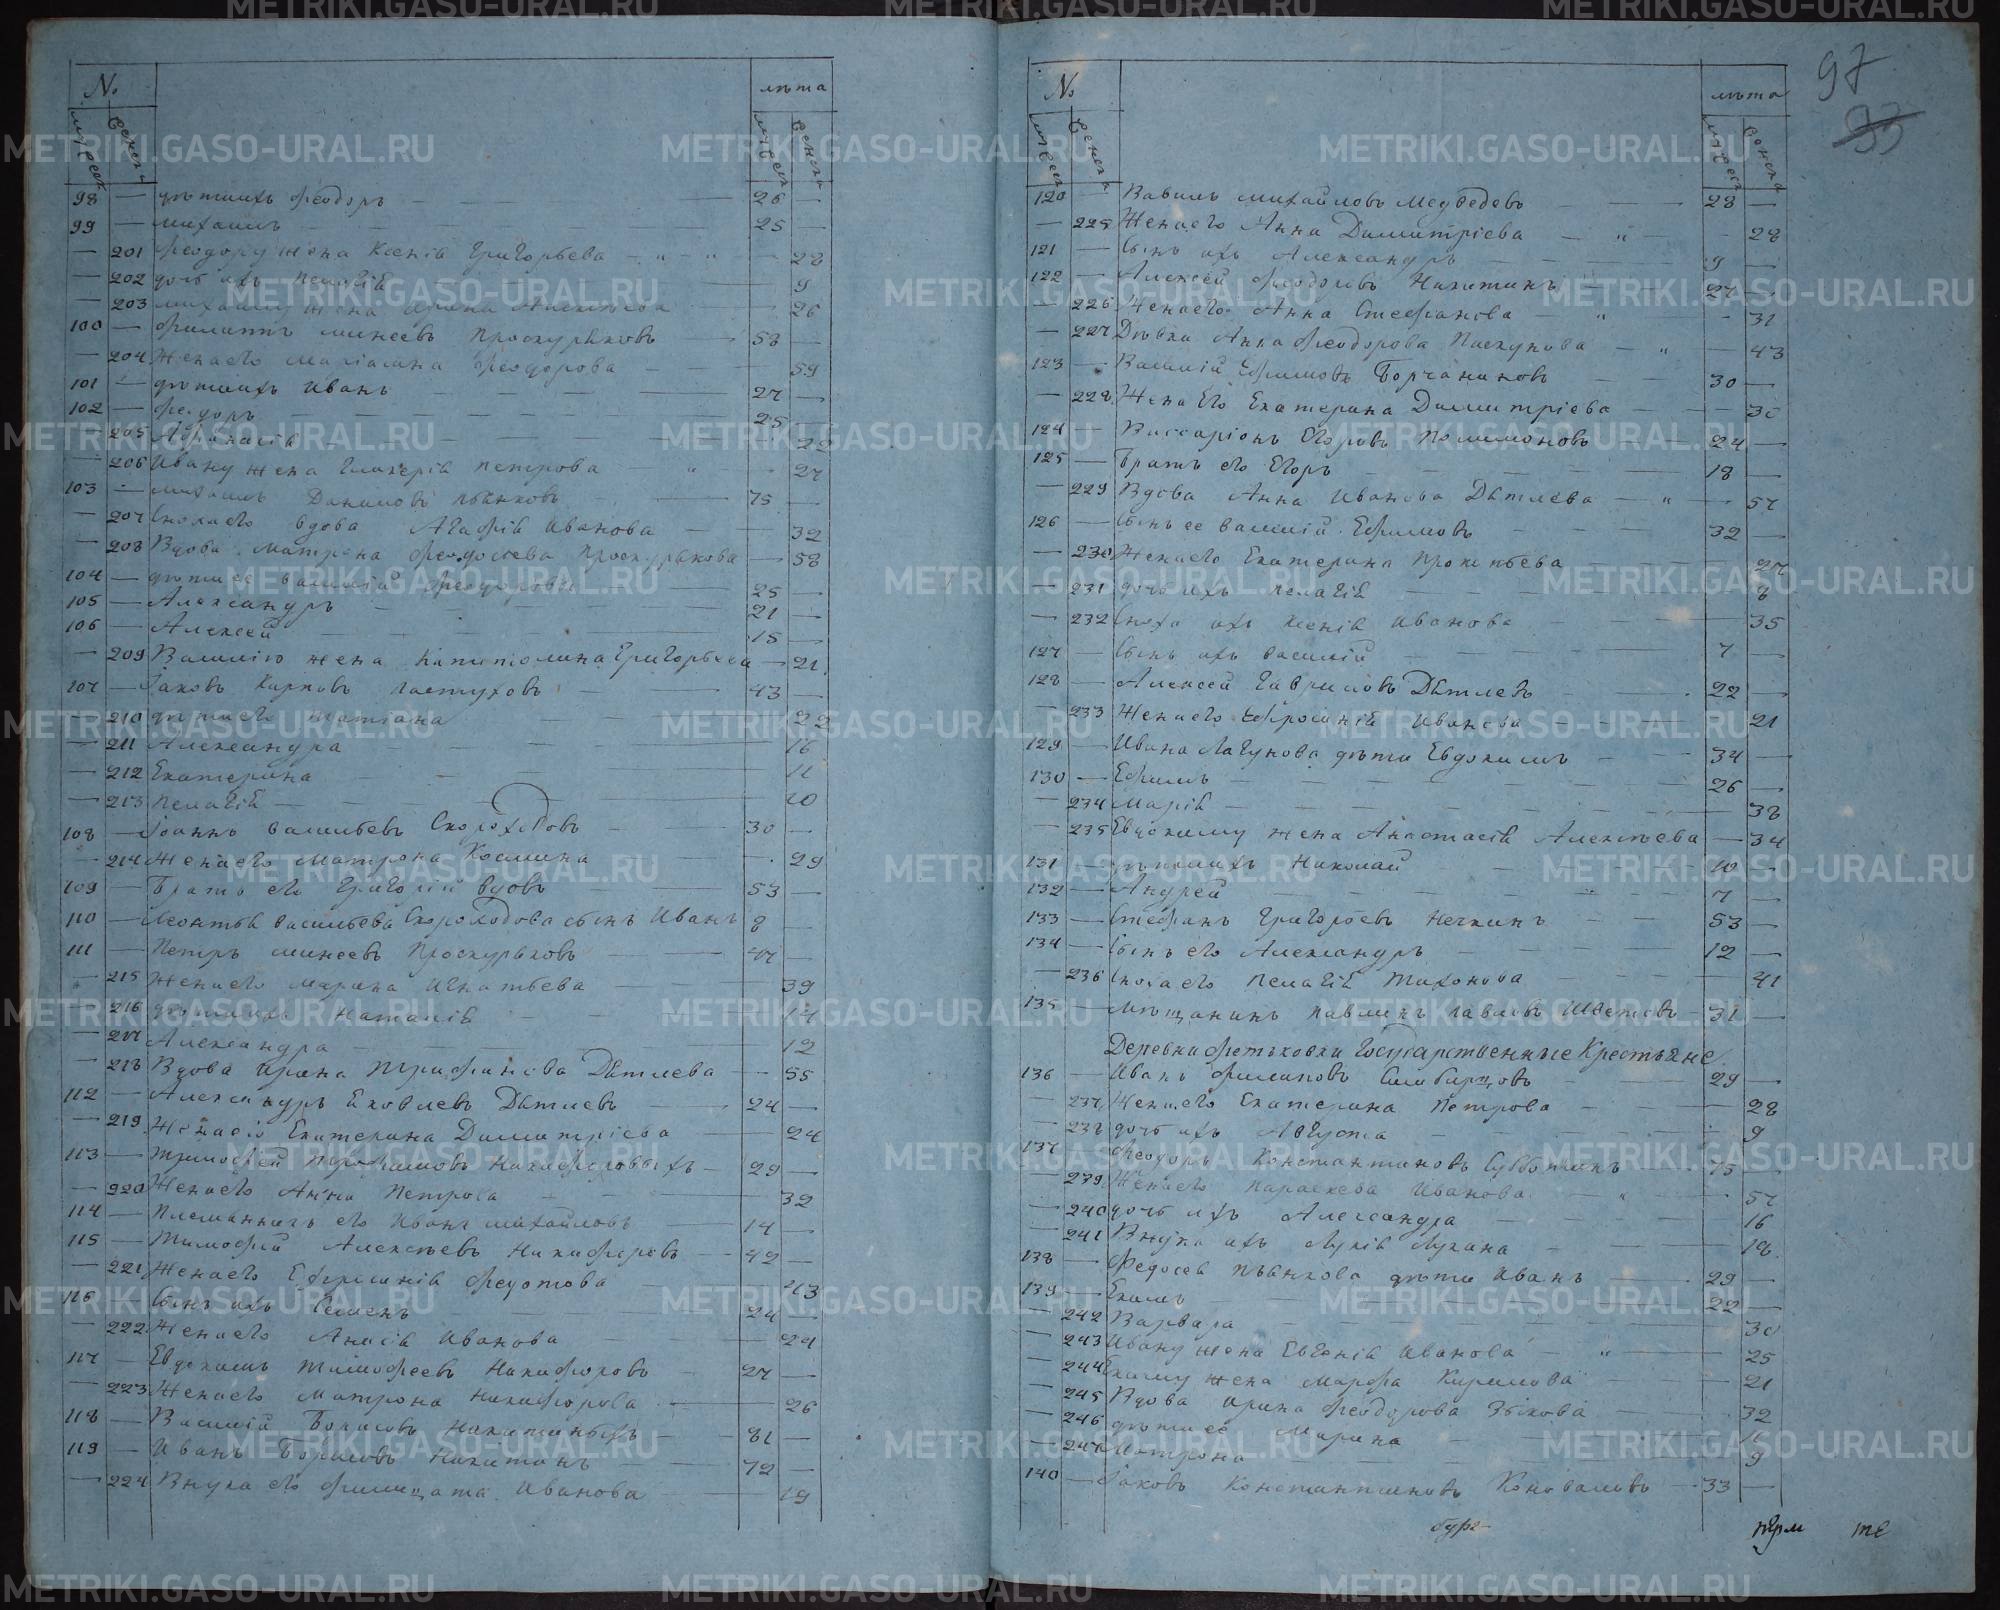 № лѣта
мужеск женска мужеск женска
98 — дѣти ихъ Феодоръ — 26 —
99 — Михаилъ — 25 —
— 201 Феодору жена Ксенія Григорьева — " — " — 28
— 202 дочь ихъ Пелагія — 9
— 203 Михаилу жена Ирина Алексѣева — 26
100 — Филиппъ Минеевъ Проскуряковъ — 58 —
— 204 Жена его Маріамна Феодорова — 59
101 — дѣти ихъ Иванъ — 27 —
102 — Феодоръ — 25 —
— 205 Афанасія — 22
— 206 Ивану жена Гликерія Петрова " — 27
103 — Михаилъ Даниловъ Пьянковъ — 75 —
— 207 Сноха его вдова Агафія Иванова — 32
— 208 Вдова Матрона Феодосиева Проскурякова — 58
104 — дѣти ея Василій Феодоровъ — 25 —
105 — Александръ — 21 —
106 — Алексей — 15 —
— 209 Василію жена Капитолина Григорьева — 21
107 — Іаковъ Карповъ Пастуховъ — 43 —
— 210 дѣти его Татіана — 22
— 211 Александра — 16
— 212 Екатерина — 11
— 213 Пелагія — 10
108 — Іоаннъ Васильевъ Скороходовъ — 30 —
— 214 Жена его Матрона Косьмина — 29
109 — Братъ его Григорій вдовъ — 53 —
110 — Леонтья Васильева Скороходова сынъ Иванъ 8 —
111 — Петръ Минеевъ Проскуряковъ — 47 —
— 215 Жена его Марина Игнатьева — 39
— 216 дѣти ихъ Наталія — 14
— 217 Александра — 12
— 218 Вдова Ирина Трифонова Дѣтлева — 55
112 — Александръ Яковлевъ Дѣтлевъ — 24 —
— 219 Жена его Екатерина Димитріева — 24
113 — Тимофей Трофимовъ Никифоровыхъ — 29 —
— 220 Жена его Анна Петрова — 32
114 — Племянникъ его Иванъ Михайловъ — 14 —
115 — Тимофей Алексѣевъ Никифоровъ — 42 —
— 221 Жена его Ефросинія Федотова — 43
116 — Сынъ ихъ Семенъ — 24 —
— 222 Жена его Анисія Иванова — 24
117 — Евдокимъ Тимофеевъ Никифоровъ — 27 —
— 223 Жена его Матрона Никифорова — 26
118 — Василій Борисовъ Никитиныхъ — 81 —
119 — Иванъ Борисовъ Никитинъ — 72 —
— 224 Внука его Филицата Иванова — 19
97
93
№ лѣта
мужеск женска мужеск женска
120 — Вавилъ Михайловъ Медведевъ — 28 —
— 225 Жена его Анна Димитріева — " — 28
121 — Сынъ ихъ Александръ — 9 —
122 — Алексей Феодоровъ Никитинъ — 27 —
— 226 Жена его Анна Стефанова — " — 31
— 227 Дѣвка Анна Феодорова Пискунова — " — 43
123 — Василій Ефимовъ Борчаниновъ — 30 —
— 228 Жена Его Екатерина Димитріева — 30
124 — Виссаріонъ Егоровъ Полимоновъ — 24 —
125 — Братъ его Егоръ — 18 —
— 229 Вдова Анна Иванова Дѣтлева — " — 57
126 — Сынъ ее Василій Ефимовъ — 32 —
— 230 Жена его Екатерина Прокопьева — 27
— 231 дочь ихъ Пелагія — 8
— 232 Сноха ихъ Ксенія Иванова — 35
127 — Сынъ ихъ Василій — 7 —
128 — Алексей Гавриловъ Дѣтлевъ — 22 —
— 233 Жена его Ефросинія Иванова — 21
129 — Ивана Лагунова дѣти Евдокимъ — 34 —
130 — Ефимъ — 26 —
— 234 Марія — 38
— 235 Евдокиму жена Анастасія Алексѣева — 34
131 — дѣти ихъ Николай — 10 —
132 — Андрей — " 7 —
133 — Стефанъ Григорьевъ Нечкинъ — 53 —
134 — Сынъ его Александръ — 12 —
— 236 Сноха его Пелагія Тихонова — 41
135 — Мѣщанинъ Павлинъ Павловъ Шветовъ — 31 —
Деревни Фетьковки Государственные Крестьяне
136 — Иванъ Филиповъ Симбирцовъ — 29 —
— 237 Жена его Екатерина Петрова — 28
— 238 дочь ихъ Августа — 9
137 — Феодоръ Константиновъ Субботинъ — 75 —
— 239 Жена его Параскева Иванова — " — 57
— 240 дочь ихъ Александра — 16
— 241 Внука ихъ Лукія Лукина — 18
138 — Федосея Пьянкова дѣти Иванъ — 29 —
139 — Екимъ — 22 —
— 242 Варвара — 30
— 243 Ивану жена Евгенія Иванова — " — 25
— 244 Екиму жена Марфа Кирилова — 21
— 245 Вдова Ирина Феодорова Зыкова — 32
— 246 дѣти ее Марина — 10
— 247 Матрона — 9
140 — Іаковъ Константиновъ Коноваловъ — 33 —
METRIKI.GASO-URAL.RU